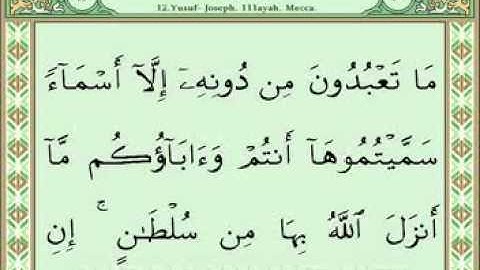 12.Yusuf- Joseph. 111ayah. Mecca.
مَا تَعْبُدُونَ مِن دُونِهِۦٓ إِلَّآ أَسْمَآءً
سَمَّيْتُمُوهَآ أَنتُمْ وَءَابَآؤُكُم مَّآ
أَنزَلَ ٱللَّهُ بِهَا مِن سُلْطَٰنٍ ۚ إِنِ